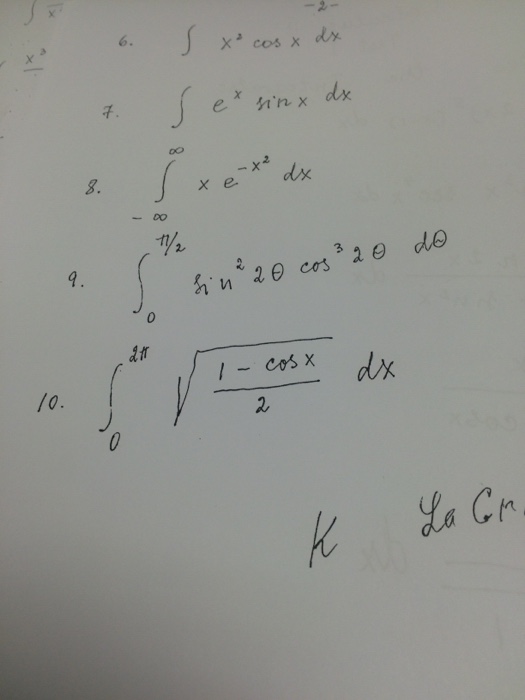 -2-
6. ∫ x² cos x dx
7. ∫ eˣ sin x dx
8. ∫_{-∞}^{∞} x e^{-x²} dx
9. ∫_0^{π/2} sin² 2θ cos³ 2θ dθ
10. ∫_0^{2π} √((1 - cos x)/2) dx
K